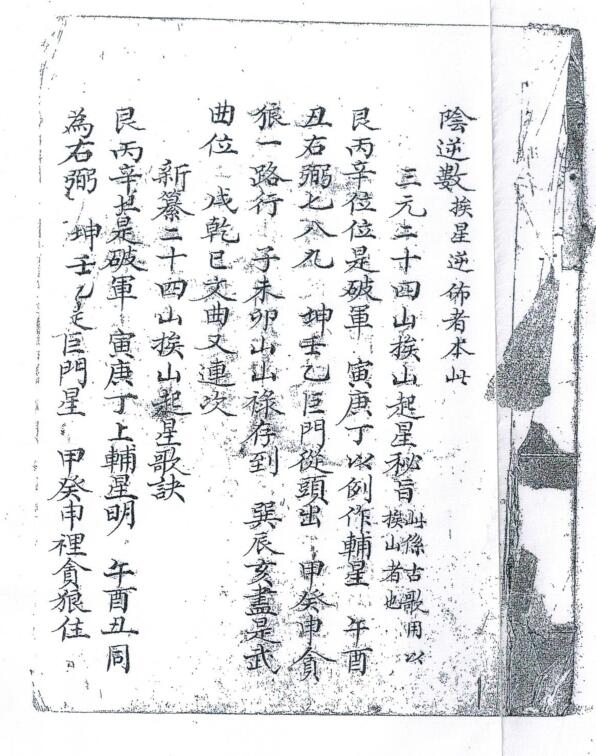 陰逆數 挨星逆佈者本此
三元二十四山挨山起星秘旨 此係古歌用以挨山者也
艮丙辛位位是破軍 寅庚丁以例作輔星 午酉
丑右弼七八九 坤壬乙巨門從頭出 甲癸申貪
狼一路行 子未卯山山祿存到 巽辰亥盡是武
曲位 戌乾巳文曲又連次
新纂二十四山挨山起星歌訣
艮丙辛 是破軍 寅庚丁上輔星明 午酉丑同
為右弼 坤壬乙 巨門星 甲癸申裡貪狼住